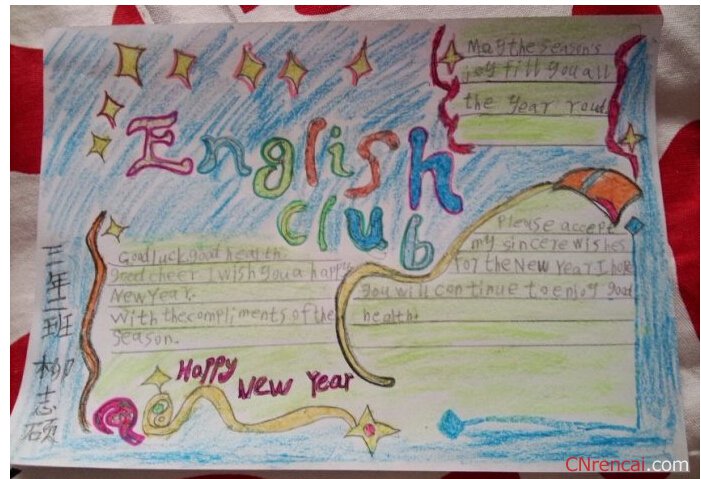 May the season's
joy fill you all
the year roud
English
club
Good luck good health
good cheer I wish you a happy
New Year.
With the compliments of the
season.
Please accept
my sincere wishes
for the New Year I hope
you will continue to enjoy good
health!
三年二班 柳志硕
Happy New Year
CNrencai.com